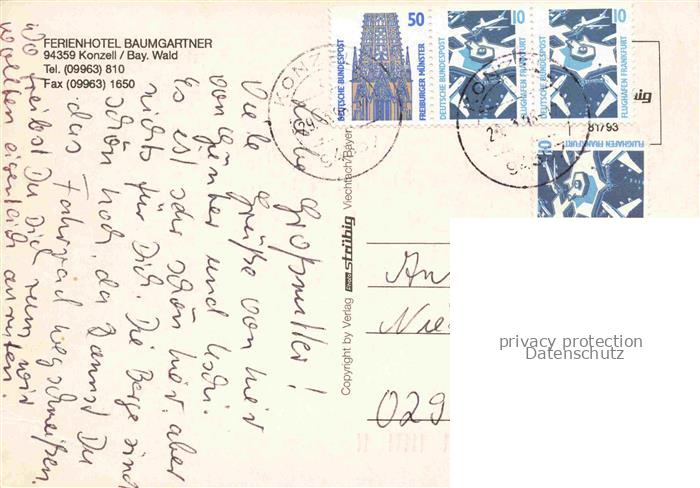 FERIENHOTEL BAUMGARTNER
94359 Konzell / Bay. Wald
Tel. (09963) 810
Fax (09963) 1650
DEUTSCHE BUNDESPOST
50
FREIBURGER MÜNSTER
DEUTSCHE BUNDESPOST
10
FLUGHAFEN FRANKFURT
DEUTSCHE BUNDESPOST
10
FLUGHAFEN FRANKFURT
10
FLUGHAFEN FRANKFURT
KONZ
94359
81793
Copyright by Verlag Foto stübig Viechtach/Bayer.
Liebe Großmutter!
Viele Grüße von hier
von Günter und Uschi.
Es ist sehr schön hier, aber
nichts für Dich. Die Berge sind
schön hoch, da kannst Du
das Fahrrad wegschmeißen.
Wo treibst Du Dich rum, wir
wollten eigentlich anrufen.
An
Nie
029
privacy protection
Datenschutz